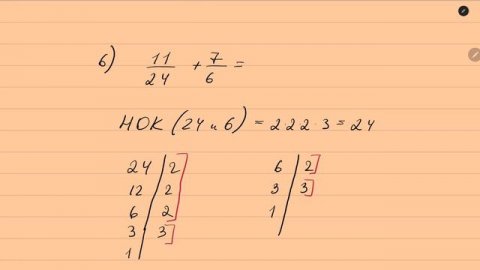 б) 11/24 + 7/6 =
НОК (24 и 6) = 2·2·2·3 = 24
24 | 2
12 | 2
6 | 2
3 | 3
1 |
6 | 2
3 | 3
1 |